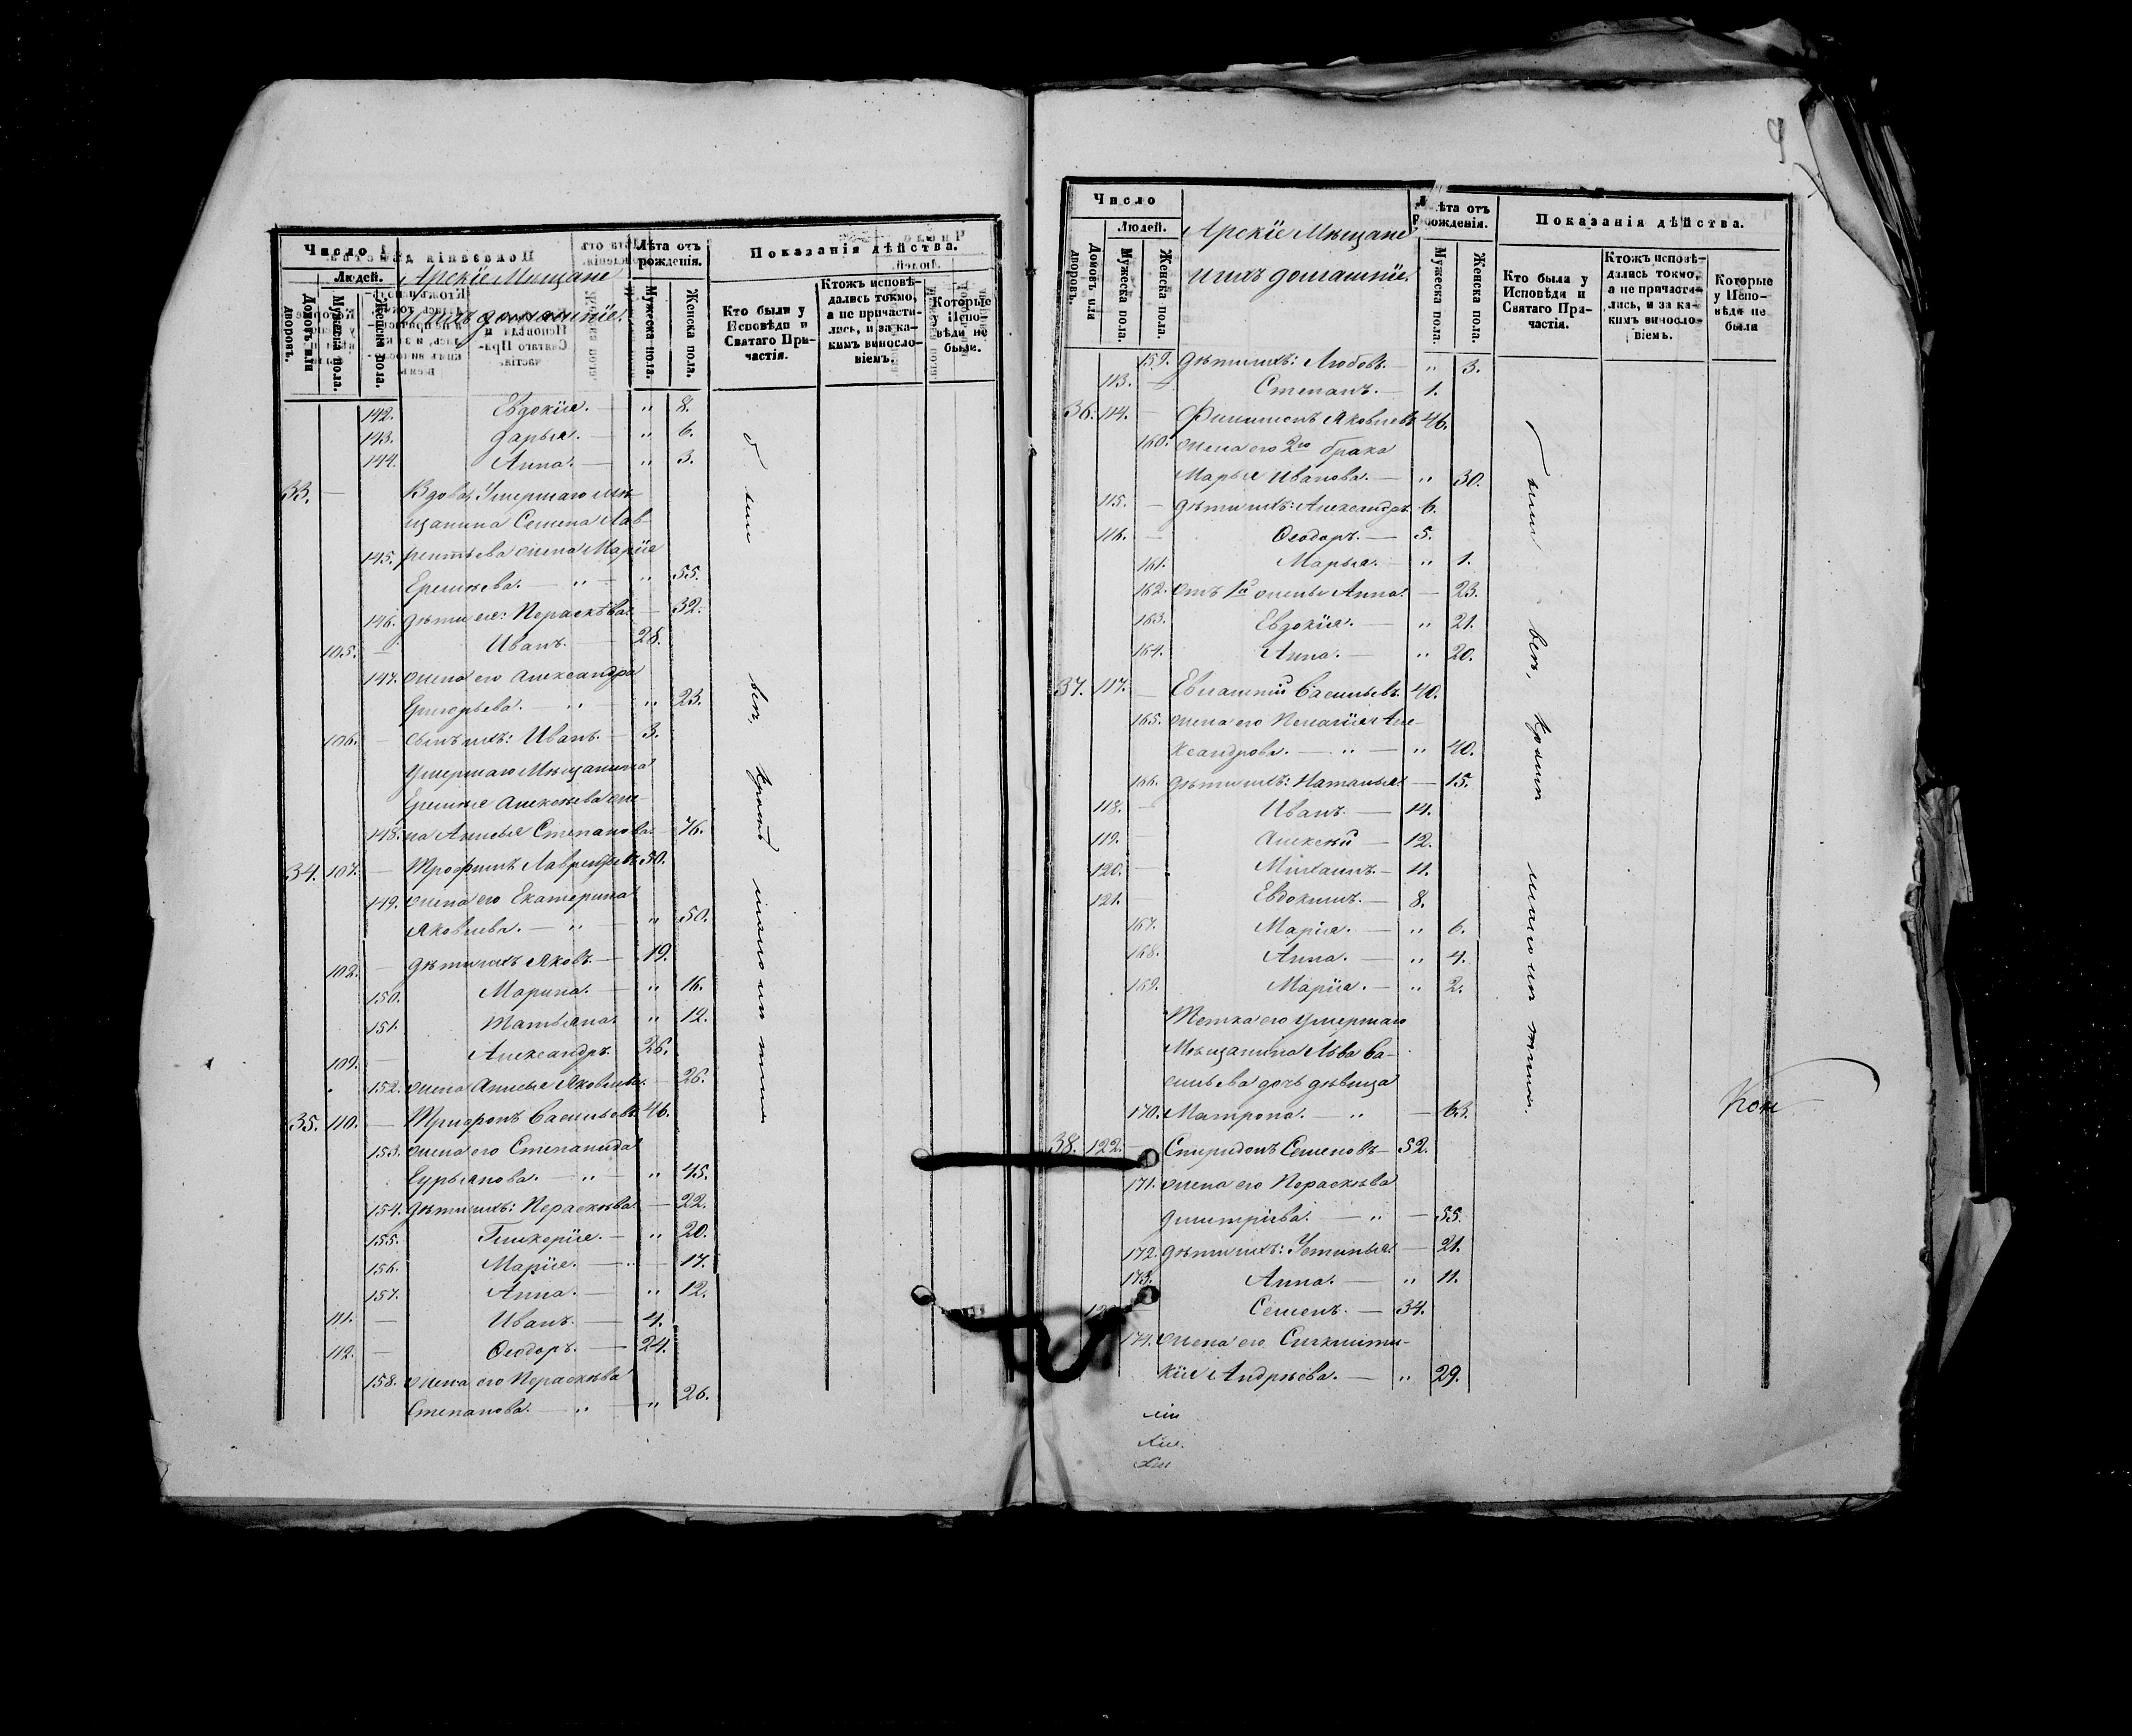 Число
Людей.
Домовъ или дворовъ.
Мужеска пола.
Женска пола.
Арскіе Мѣщане
и ихъ домашніе.
Лѣта отъ рожденія.
Мужеска пола.
Женска пола.
Показанія дѣйства.
Кто были у Исповѣди и Святаго Причастія.
Ктожъ исповѣдались токмо, а не причастились, и за какимъ винословіемъ.
Которые у Исповѣди не были.
142. Евдокія. — " 8.
143. Дарья. — " 6.
144. Анна. — " 3.
33. — Вдова, Умершаго мѣ-
щанина Семена Лав-
145. рентьева жена Марія
Еремѣева. — " — " 55.
146. дѣти ея: Параскѣва. — 32.
105. — Иванъ. — 28.
147. жена его Александра
Григорьева. — " — " 23.
106. — сынъ ихъ: Иванъ. — 3.
Умершаго Мѣщанина
Еремѣя Алексѣева же-
148. на Анисья Степанова. — 76.
34. 107. — Трофимъ Лаврентьевъ 50.
149. жена его Екатерина
Яковлева. — " — " 50.
108. — дѣти ихъ Яковъ. — 19.
150. Марина. — " 16.
151. Татьяна. " 12.
109. — Александръ. 26.
152. жена Анисья Яковлева. — 26.
35. 110. — Трифонъ Васильевъ. 46.
153. жена его Степанида
Гурьянова. — " — " 45.
154. дѣти ихъ: Параскѣва. — 22.
155. Гликерія. — " 20.
156. Марія. — " — 17.
157. Анна. — " 12.
111. — Иванъ. — 4.
112. — Ѳеодоръ. — 24.
158. жена его Параскѣва
Степанова. — " — " 26.
9
Число
Людей.
Домовъ или дворовъ.
Мужеска пола.
Женска пола.
Арскіе Мѣщане
и ихъ домашніе.
Лѣта отъ рожденія.
Мужеска пола.
Женска пола.
Показанія дѣйства.
Кто были у Исповѣди и Святаго Причастія.
Ктожъ исповѣдались токмо, а не причастились, и за какимъ винословіемъ.
Которые у Исповѣди не были
159. дѣти ихъ: Любовь. — " 3.
113. — Степанъ. — 1.
36. 114. — Филимонъ Яковлевъ 46.
160. жена его 2го брака
Марья Иванова. — " 30.
115. — дѣти ихъ: Александръ 6.
116. — Ѳеодоръ. — 5.
161. Марья. — " 1.
162. отъ 1й жены Анна. — 23.
163. Евдокія. — " 21.
164. Анна. — " 20.
37. 117. — Евлампій Васильевъ. 40.
165. жена его Пелагія Але-
ксандрова. — " — " 40.
166. дѣти ихъ: Наталья. — 15.
118. — Иванъ. — 14.
119. — Алексѣй — 12.
120. — Михаилъ. — 11.
121. — Евдокимъ. — 8.
167. Марія. — " 6.
168. Анна. — " 4.
169. Марія. — " 2.
Тетка его умершаго
Мѣщанина Льва Ва-
сильева дочь дѣвица
170. Матрона. — " — 63.
38. 122. — Спиридонъ Семеновъ — 52.
171. жена его Параскѣва
Дмитріева. — " — 55.
172. дѣти ихъ: Устинья. — 21.
173. Анна. — " 11.
Семенъ. — 34.
174. жена его Синклити-
кія Андрѣева. — " 29.